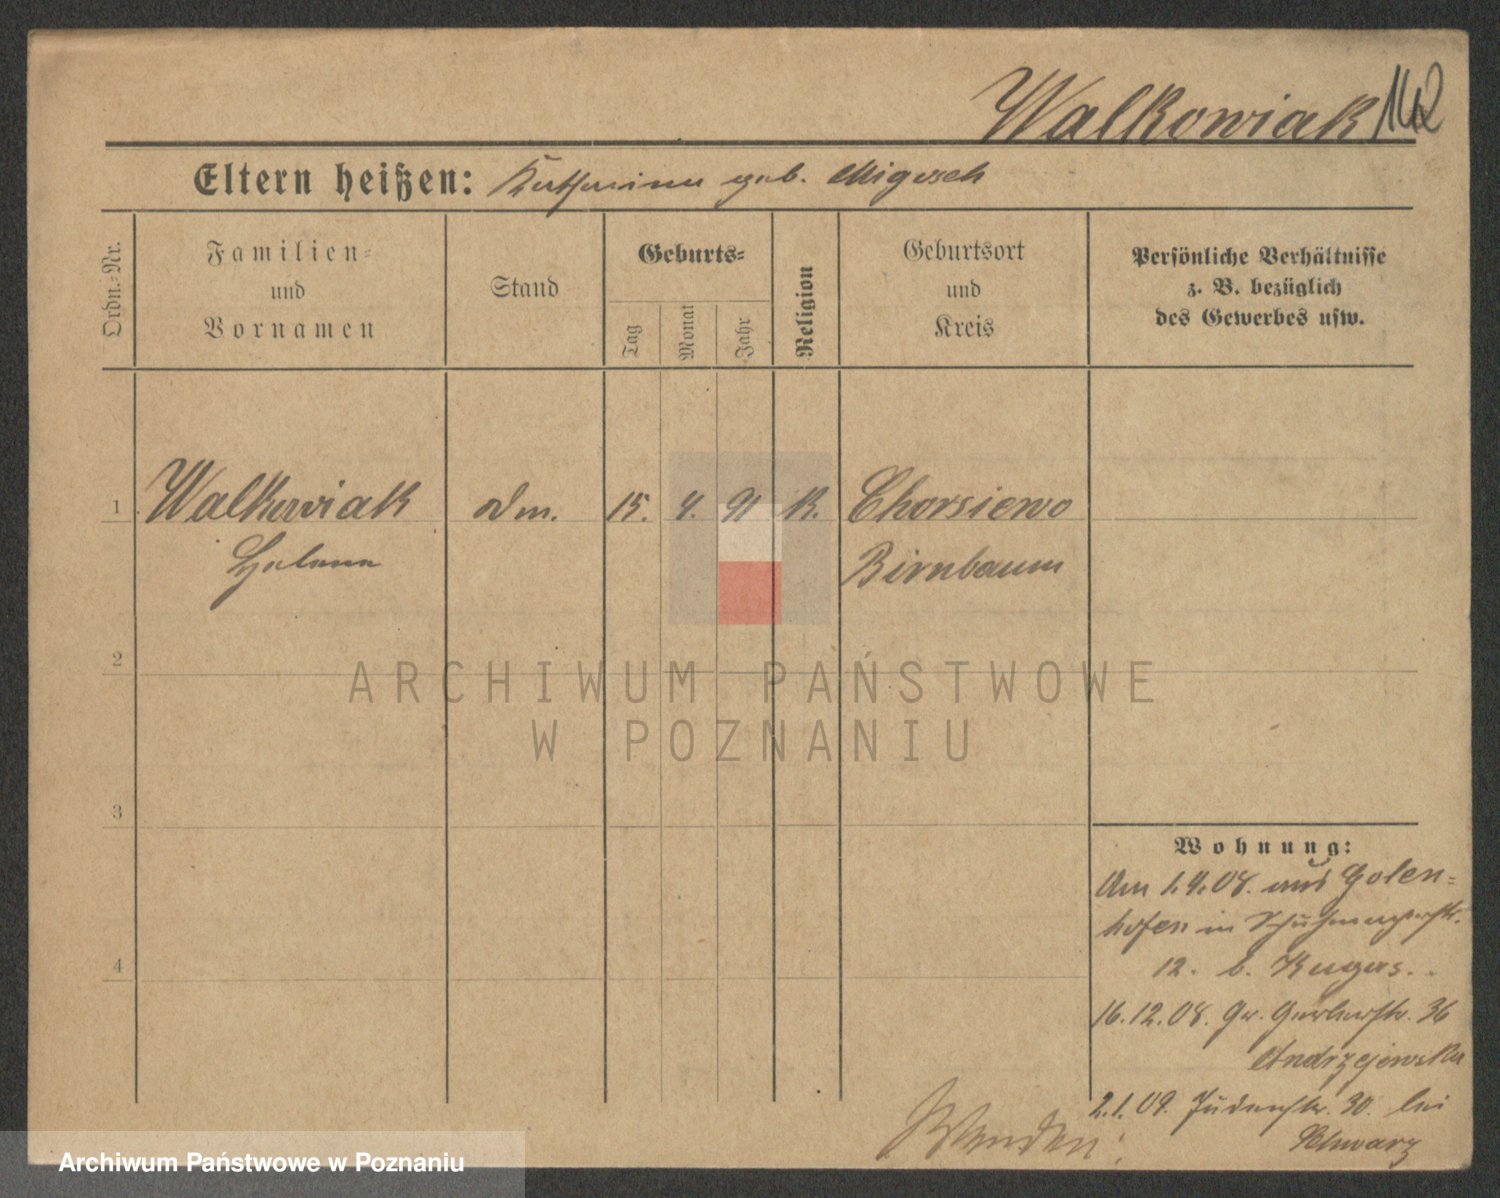 Walkowiak 162
Eltern heißen: Katharina geb. Migosch
Ordn.-Nr.
Familien-
und
Vornamen
Stand
Geburts-
Tag
Monat
Jahr
Religion
Geburtsort
und
Kreis
Persönliche Verhältnisse
z. B. bezüglich
des Gewerbes usw.
1 Walkowiak 15. 4. 91 K. Chorsiewo
Helena Birnbaum
2
3
4
ARCHIWUM PAŃSTWOWE
W POZNANIU
Wohnung:
Am 1.4.08. aus Golen-
hofen in Schuhmacherstr.
12. b.
16.12.08. Gr. Gerberstr. 36
Andrzejewska
2.1.09. Judenstr. 30. bei
Schwarz
Wenden!
Archiwum Państwowe w Poznaniu